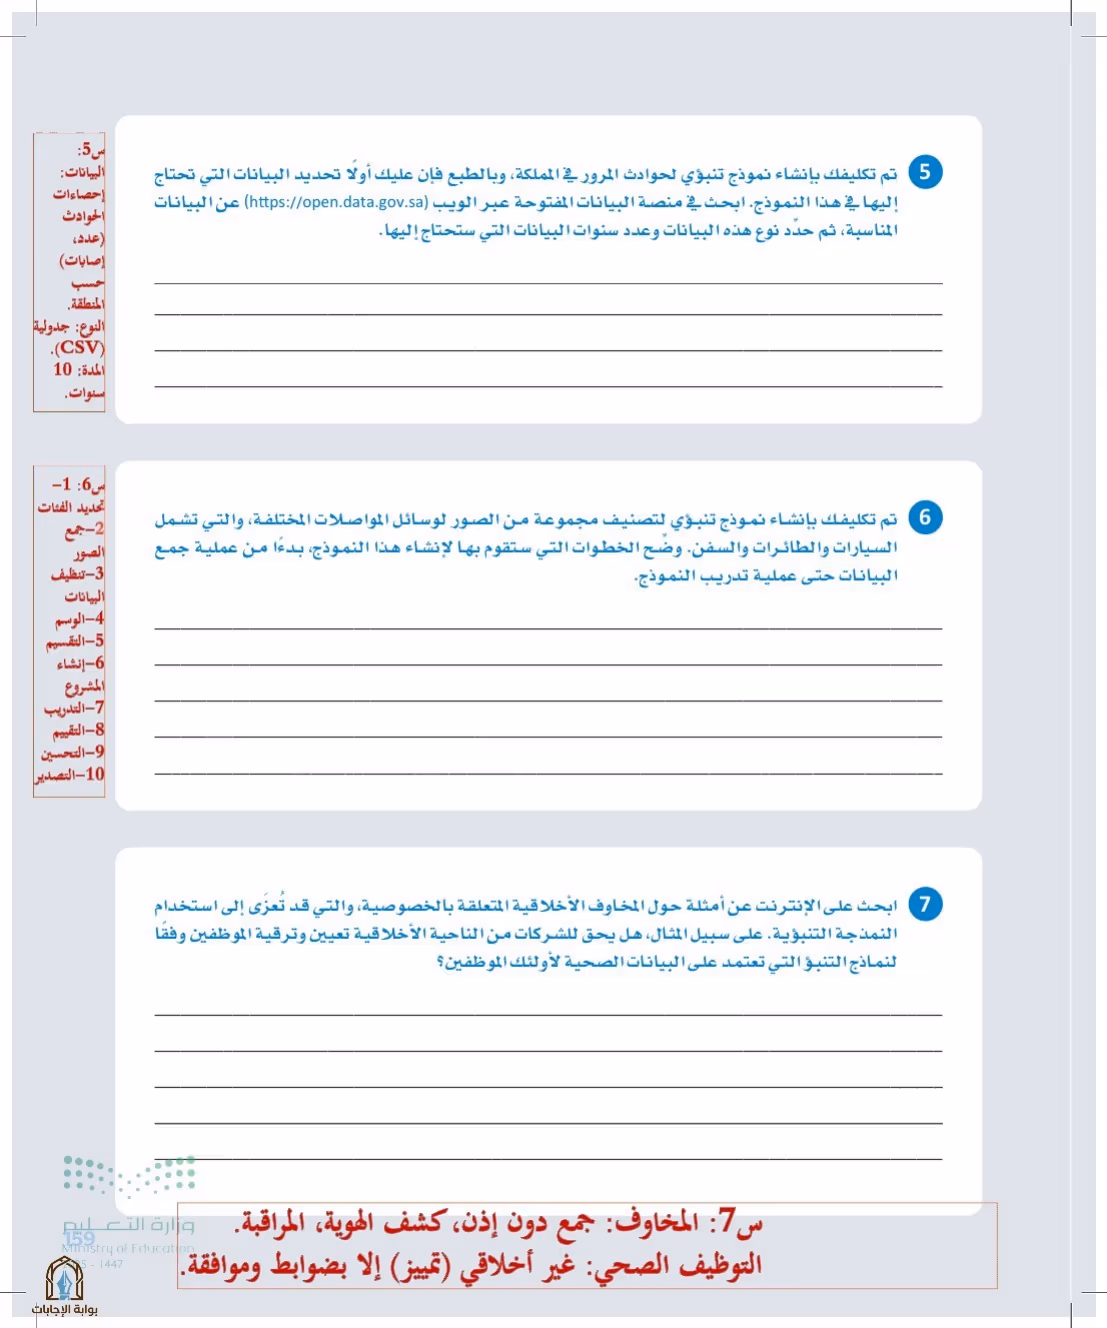 5
تم تكليفك بإنشاء نموذج تنبؤي لحوادث المرور في المملكة، وبالطبع فإن عليك أولًا تحديد البيانات التي تحتاج
إليها في هذا النموذج. ابحث في منصة البيانات المفتوحة عبر الويب (https://open.data.gov.sa) عن البيانات
المناسبة، ثم حدّد نوع هذه البيانات وعدد سنوات البيانات التي ستحتاج إليها.
س5:
البيانات:
إحصاءات
الحوادث
(عدد،
إصابات)
حسب
المنطقة.
النوع: جدولية
(CSV).
المدة: 10
سنوات.
6
تم تكليفك بإنشاء نموذج تنبؤي لتصنيف مجموعة من الصور لوسائل المواصلات المختلفة، والتي تشمل
السيارات والطائرات والسفن. وضّح الخطوات التي ستقوم بها لإنشاء هذا النموذج، بدءًا من عملية جمع
البيانات حتى عملية تدريب النموذج.
س6: 1–
تحديد الفئات
2–جمع
الصور
3–تنظيف
البيانات
4–الوسم
5–التقسيم
6–إنشاء
المشروع
7–التدريب
8–التقييم
9–التحسين
10–التصدير
7
ابحث على الإنترنت عن أمثلة حول المخاوف الأخلاقية المتعلقة بالخصوصية، والتي قد تُعزَى إلى استخدام
النمذجة التنبؤية. على سبيل المثال، هل يحق للشركات من الناحية الأخلاقية تعيين وترقية الموظفين وفقًا
لنماذج التنبؤ التي تعتمد على البيانات الصحية لأولئك الموظفين؟
س7: المخاوف: جمع دون إذن، كشف الهوية، المراقبة.
التوظيف الصحي: غير أخلاقي (تمييز) إلا بضوابط وموافقة.
وزارة التعليم
159
Ministry of Education
5 - 1447
بوابة الإجابات